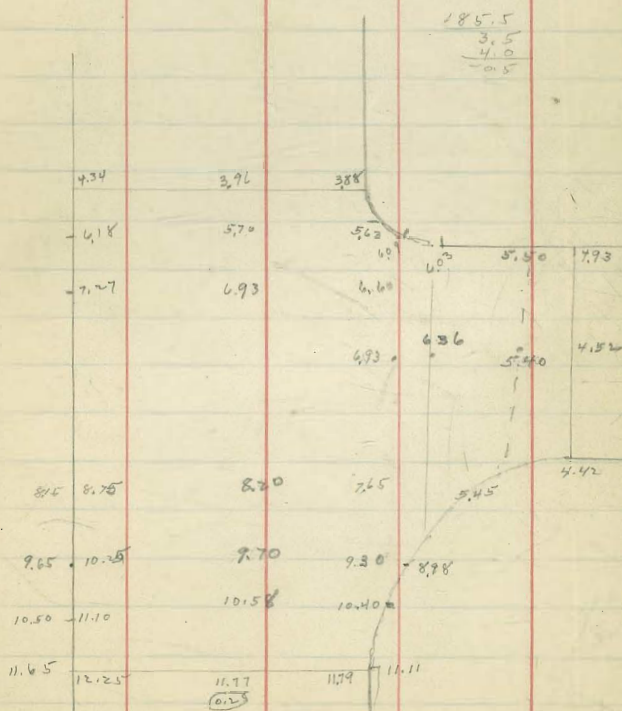 185.5
3.5
4.0
-0.5
4.34 3.96 3.88
6.18 5.70 5.63
6.0 6.03 5.50 4.93
7.27 6.93 6.60
6.93 6.36 5.40 4.52
8.15 8.75 8.20 7.65 5.45 4.42
9.65 10.25 9.70 9.30 8.98
10.50 11.10 10.58 10.40
11.65 12.25 11.77 11.79 11.11
0.25